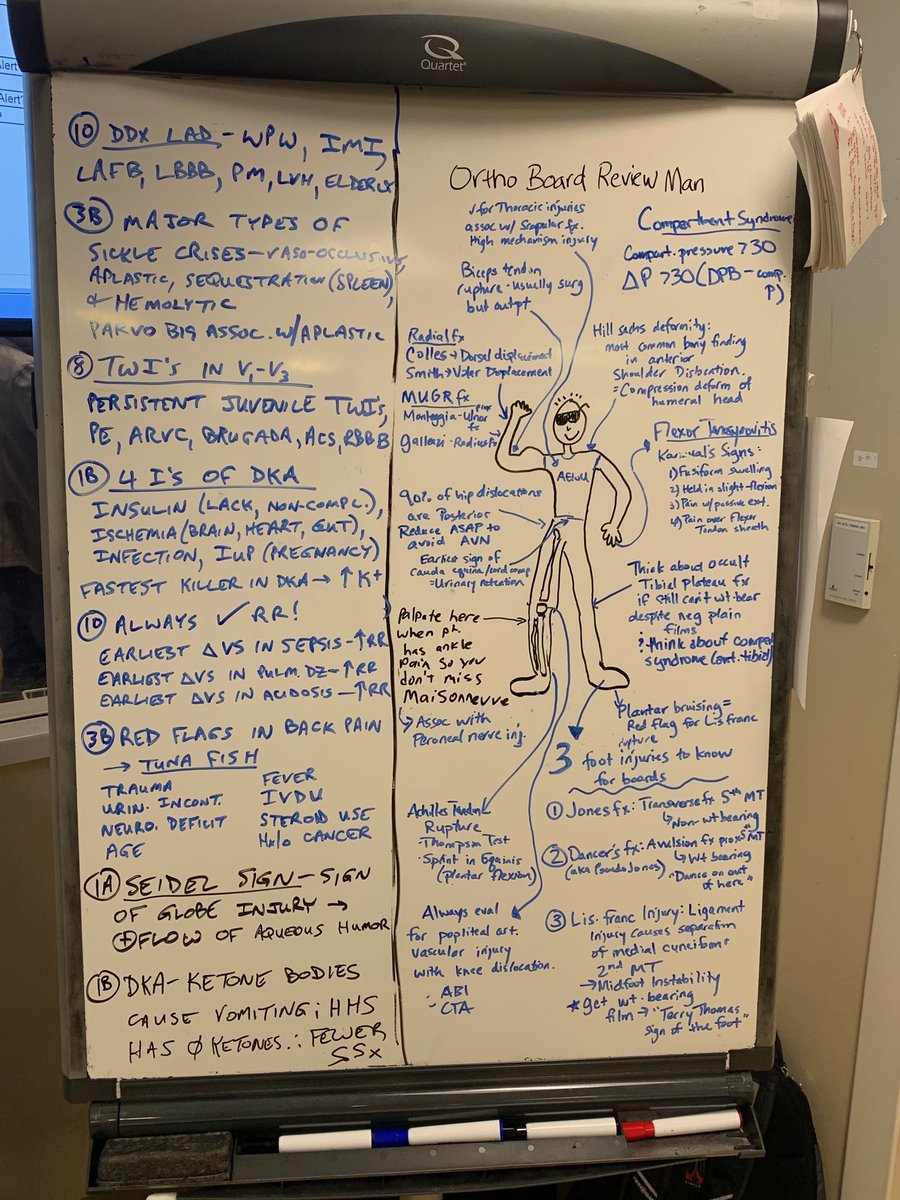 Quartet
Alert
Alert
10 DDX LAD - WPW, IMI,
LAFB, LBBB, PM, LVH, ELDERLY
3B MAJOR TYPES OF
SICKLE CRISES - VASO-OCCLUSIVE,
APLASTIC, SEQUESTRATION (SPLEEN),
& HEMOLYTIC
PARVO B19 ASSOC. W/APLASTIC
8 TWI'S IN V1-V3
PERSISTENT JUVENILE TWI'S,
PE, ARVC, BRUGADA, ACS, RBBB
1B 4 I'S OF DKA
INSULIN (LACK, NON-COMPL.),
ISCHEMIA (BRAIN, HEART, GUT),
INFECTION, IUP (PREGNANCY)
FASTEST KILLER IN DKA → ↑K+
10 ALWAYS ✓ RR!
EARLIEST ΔVS IN SEPSIS - ↑RR
EARLIEST ΔVS IN PULM. DZ - ↑RR
EARLIEST ΔVS IN ACIDOSIS - ↑RR
3B RED FLAGS IN BACK PAIN
→ TUNA FISH
TRAUMA
URIN. INCONT.
NEURO. DEFICIT
AGE
FEVER
IVDU
STEROID USE
Hx/o CANCER
1A SEIDEL SIGN - SIGN
OF GLOBE INJURY →
⊕ FLOW OF AQUEOUS HUMOR
1B DKA - KETONE BODIES
CAUSE VOMITING; HHS
HAS Ø KETONES ∴ FEWER
SSx
Ortho Board Review Man
√ for Thoracic injuries
assoc w/ Scapular fx.
High mechanism injury
Biceps tendon
rupture - usually surg
but outpt
Radial fx
Colles → Dorsal displacement
Smith → Volar Displacement
MUGR fx
Monteggia - Ulnar
prox
fx
galleazi - Radius fx
90% of hip dislocations
are Posterior
Reduce ASAP to
avoid AVN
Earliest sign of
Cauda equina/cord comp
= Urinary retention
Palpate here
when pt.
has ankle
Pain so you
don't miss
Maisonneuve
Assoc with
Peroneal nerve inj.
Achilles Tendon
Rupture
- Thompson Test
- Splint in Equinis
(plantar flexion)
Always eval
for popliteal art.
vascular injury
with knee dislocation.
ABI
CTA
Compartment Syndrome
Compart. pressure >30
ΔP >30 (DPB - comp.
P)
Hill sachs deformity:
most common bony finding
in anterior
Shoulder Dislocation.
= Compression deform of
humeral head
Flexor Tenosynovitis
Kanaval's Signs:
1) Fusiform swelling
2) Held in slight-flexion
3) Pain w/ passive ext.
4) Pain over Flexor
Tendon sheath
Think about occult
Tibial plateau fx
if still can't wt-bear
despite neg plain
films
think about compart
syndrome (ant. tibial)
Plantar bruising =
Red flag for Lis franc
rupture
3
foot injuries to know
for boards
1 Jones fx: Transverse fx 5th MT
↳ Non-wt bearing
2 Dancer's fx: Avulsion fx prox 5th MT
(aka Pseudo Jones) ↳ Wt bearing
"Dance on out
of here"
3 Lis-franc Injury: Ligament
injury causes separation
of medial cuneiform
2nd MT
→ Midfoot Instability
★ get wt-bearing
film → "Terry Thomas
sign of the foot"